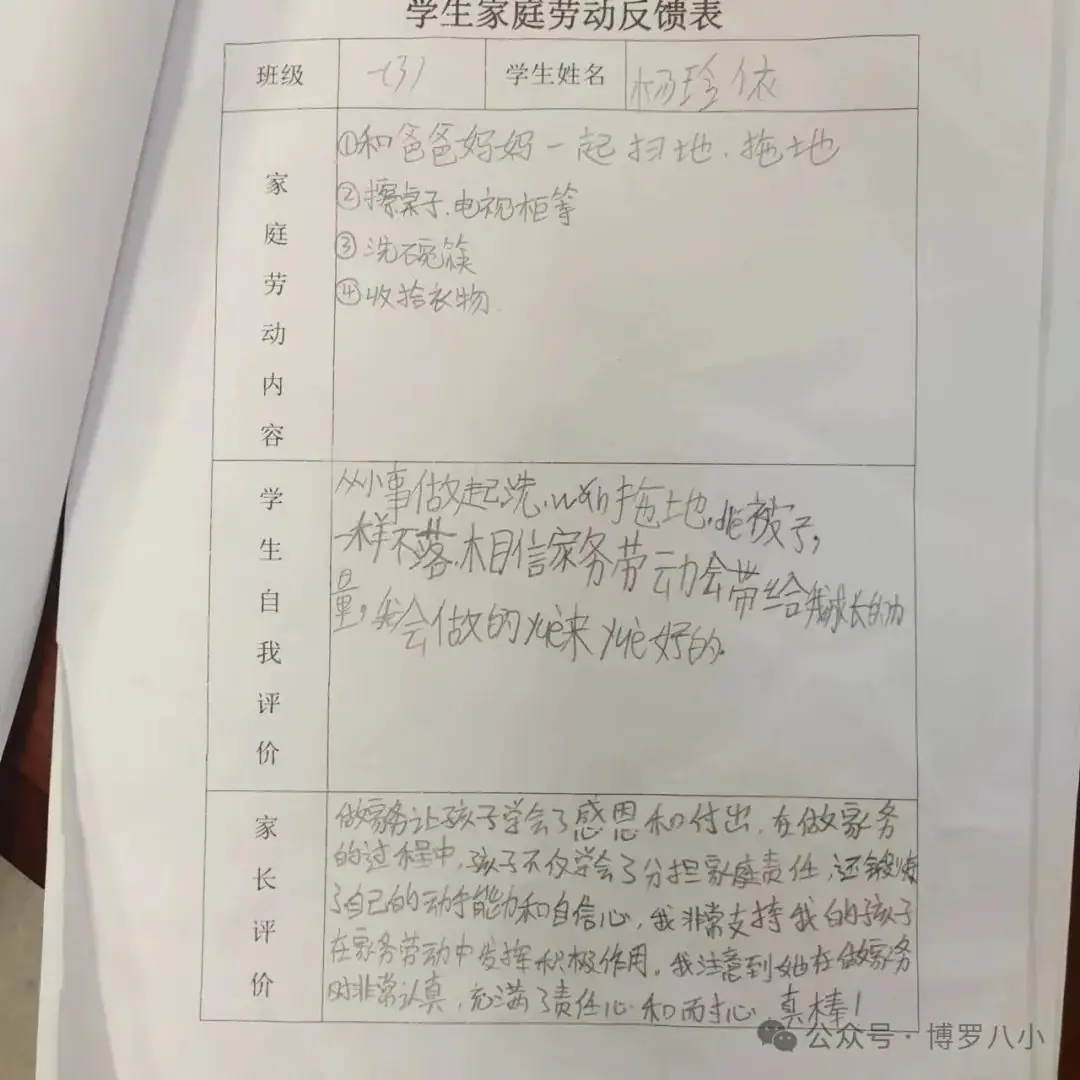 学生家庭劳动反馈表
班级 一(3) 学生姓名 杨珍依
家庭劳动内容
①和爸爸妈妈一起扫地、拖地
②擦桌子、电视柜等
③洗碗筷
④收拾衣物.
学生自我评价
从小事做起洗.wǎn拖地.dié被子,
一样不落.相信家务劳动会带给我成长的力
量,我会做的yuè来yuè好的.
家长评价
做家务让孩子学会了感恩和付出,在做家务
的过程中,孩子不仅学会了分担家庭责任,还锻炼
了自己的动手能力和自信心,我非常支持我的孩子
在家务劳动中发挥积极作用。我注意到她在做家务
时非常认真,充满了责任心和耐心,真棒!
公众号·博罗八小